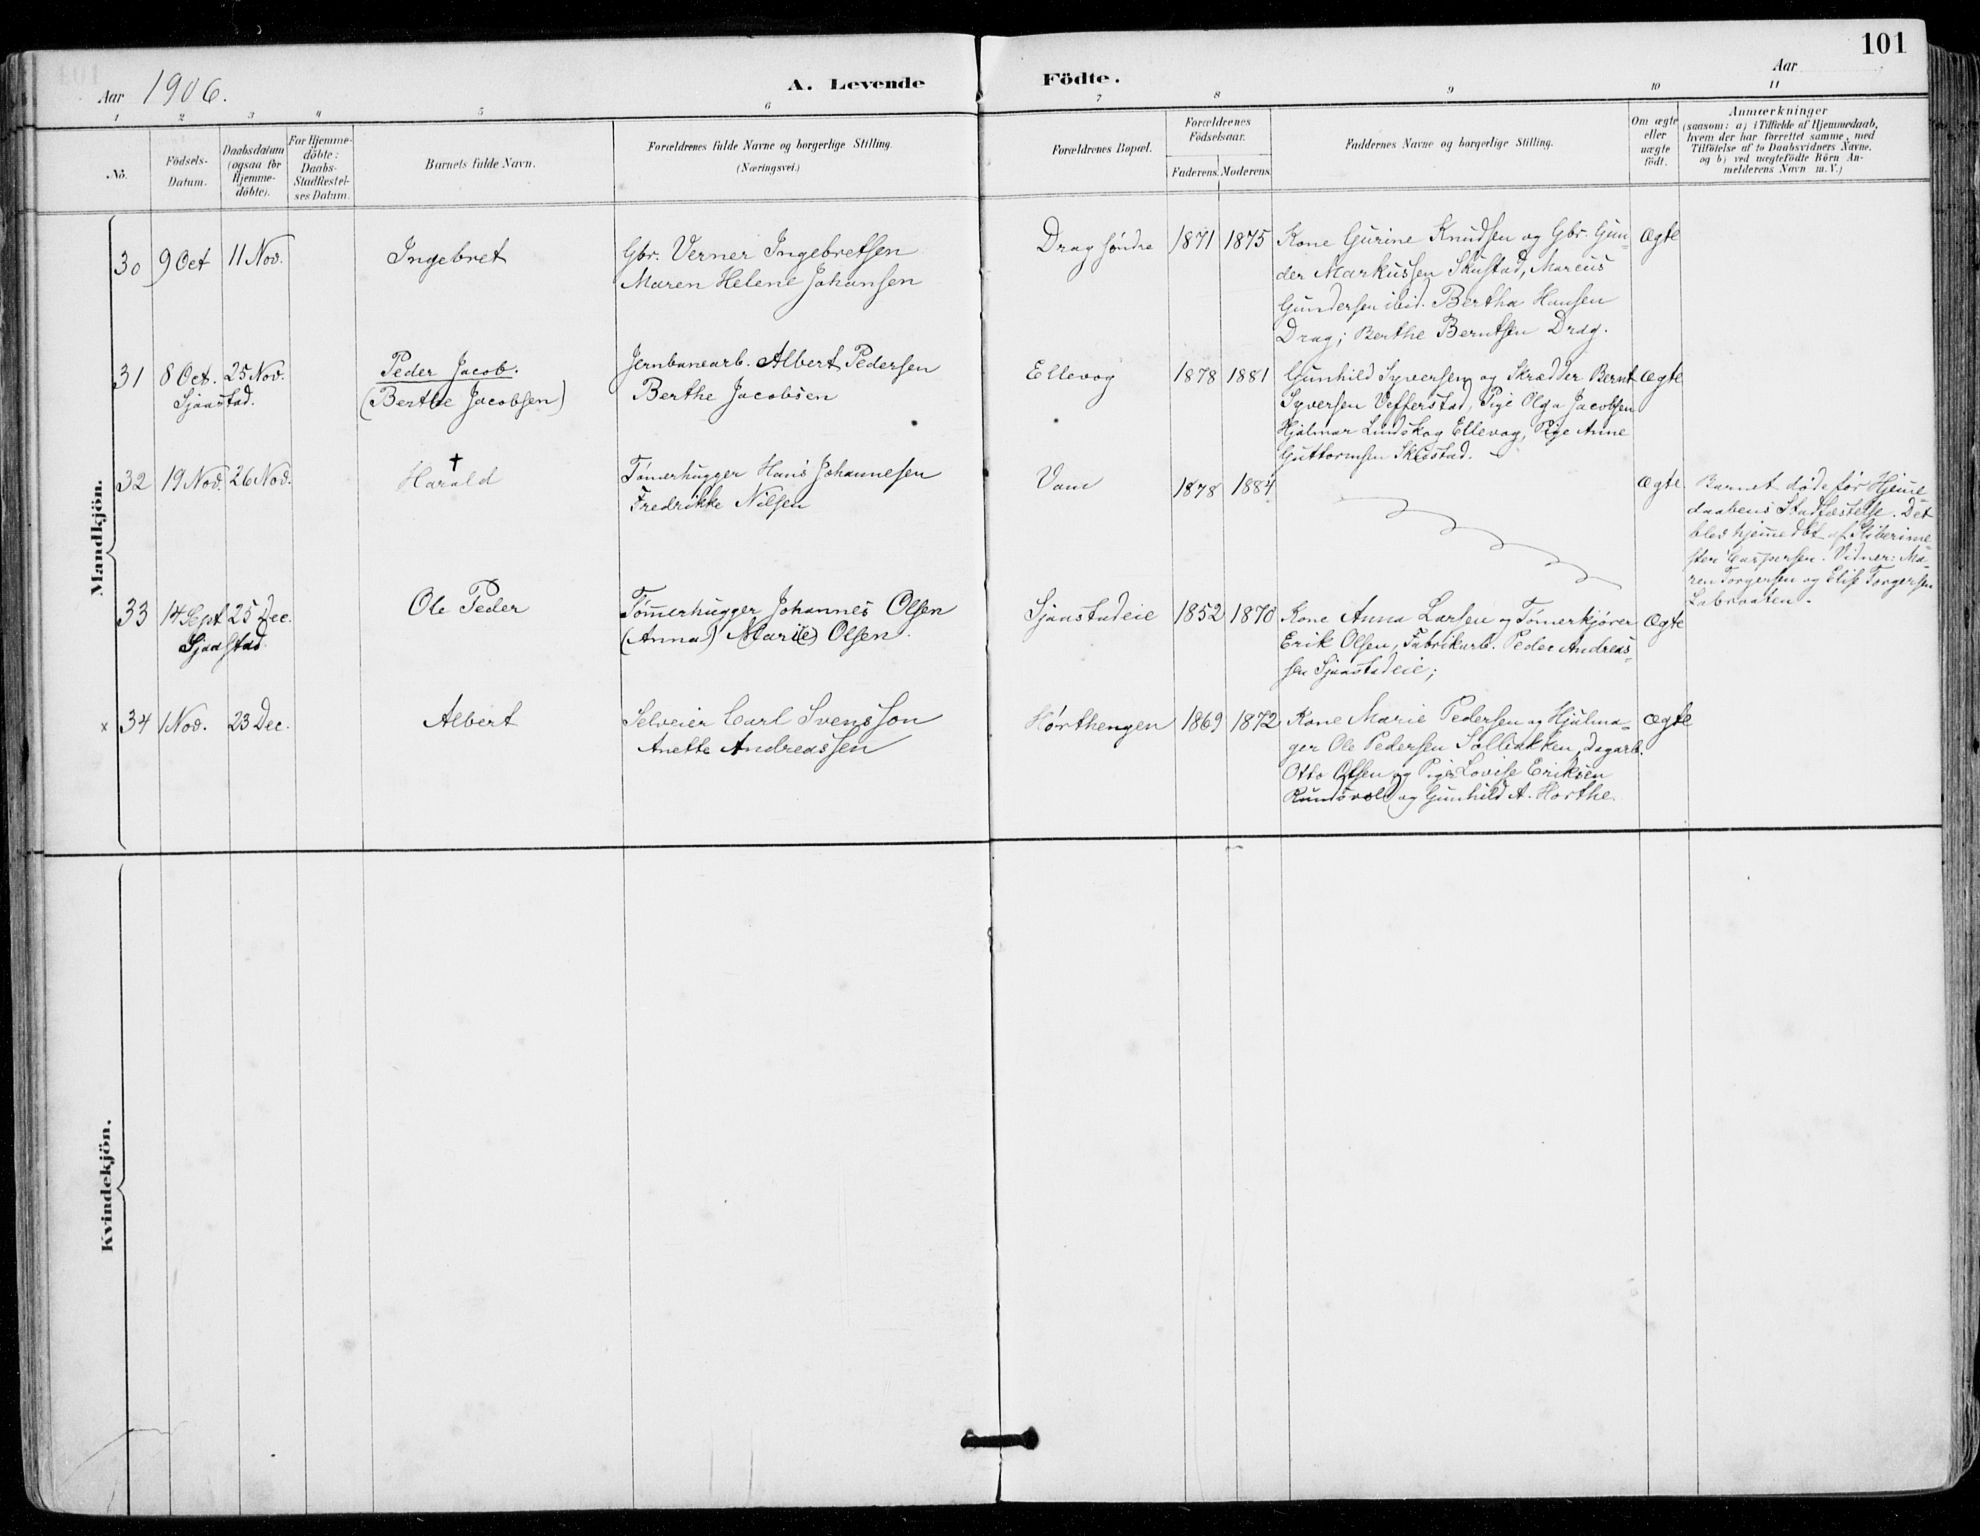 101
Aar 1906.
A. Levende Födte.
Aar
1 2 3 4 5 6 7 8 9 10 11
No.
Födsels-
Datum.
Daabsdatum
(ogsaa for
Hjemme-
döbte).
For Hjemme-
döbte:
Daabs-
Stadfæstel-
ses Datum.
Barnets fulde Navn.
Forældrenes fulde Navne og borgerlige Stilling.
(Næringsvei.)
Forældrenes Bopæl.
Forældrenes
Födselsaar.
Faderens. Moderens.
Faddernes Navne og borgerlige Stilling.
Om ægte
eller
uægte
födt.
Anmærkninger
(saasom: a) i Tilfælde af Hjemmedaab,
hvem der har forrettet samme, med
Tilföielse af to Daabsvidners Navne,
og b) ved uægtefödte Börn An-
melderens Navn m. V.)
Mandkjön.
30
9 Oct
11 Nov.
Ingebret
Gbr. Verner Ingebretsen
Maren Helene Johansen
Drag søndre
1871
1875
Kone Gurine Knudsen og Gbr. Gun-
der Markussen Skustad, Marcus
Gundersen ibid. Bertha Hansen
Drag; Berthe Berntsen Drag.
Ægte
31
8 Oct.
25 Nov.
Sjaastad.
Peder Jacob.
(Berthe Jacobsen)
Jernbanearb. Albert Pedersen
Berthe Jacobsen
Ellevog
1878
1881
Gunhild Syversen og Skrædder Bernt
Syversen Vefferstad, Pige Olga Jacobsen
Hjalmar Lindskog Ellevog, Pige Anne
Guttormsen Skustad.
Ægte
32
19 Nov.
26 Nov.
†
Harald
Tømerhugger Hans Johannesen
Fredrikke Nilsen
Vam
1878
1884
Ægte
Barnet døde før Hjeme-
daabens Stadfæstelse. Det
blev hjemedbt af
ster Caspersen. Vidner: Ma-
ren Torgersen og Elise Torgersen
33
14 Sept
25 Dec.
Sjaastad.
Ole Peder
Tømerhugger Johannes Olsen
(Anna) Mari(e) Olsen.
Sjaastadeie
1852
1870
Kone Anna Larsen og Tømerkjører
Erik Olsen, Fabrikarb. Peder Andreas-
sen Sjaastadeie;
Ægte
x 34
1 Nov.
23 Dec.
Albert
Selveier Carl Svensson
Anette Andreassen
Hørthengen
1869
1872
Kone Marie Pedersen og Hjulma-
ger Ole Pedersen Solbakken, dagarb.
Otto Olsen og Pige Lovise Eriksen
og Gunhild A. Horthe.
Ægte
Kvindekjön.